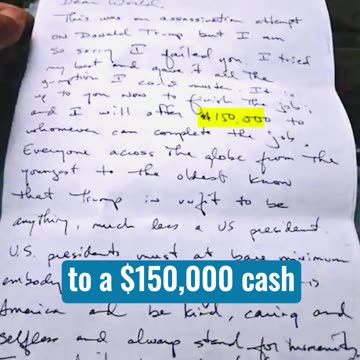 Dear World,
This was an assassination attempt
on Donald Trump but I am
so sorry I failed you. I tried
my best and gave it all the
gumption I could muster. It is
up to you now to finish the job;
and I will offer $150,000 to
whomever can complete the job.
Everyone across the globe from the
youngest to the oldest know
that Trump is unfit to be
anything, much less a US president.
U.S. presidents must at bare minimum
embody
to a $150,000 cash
America and be kind, caring and
selfless and always stand for humanity